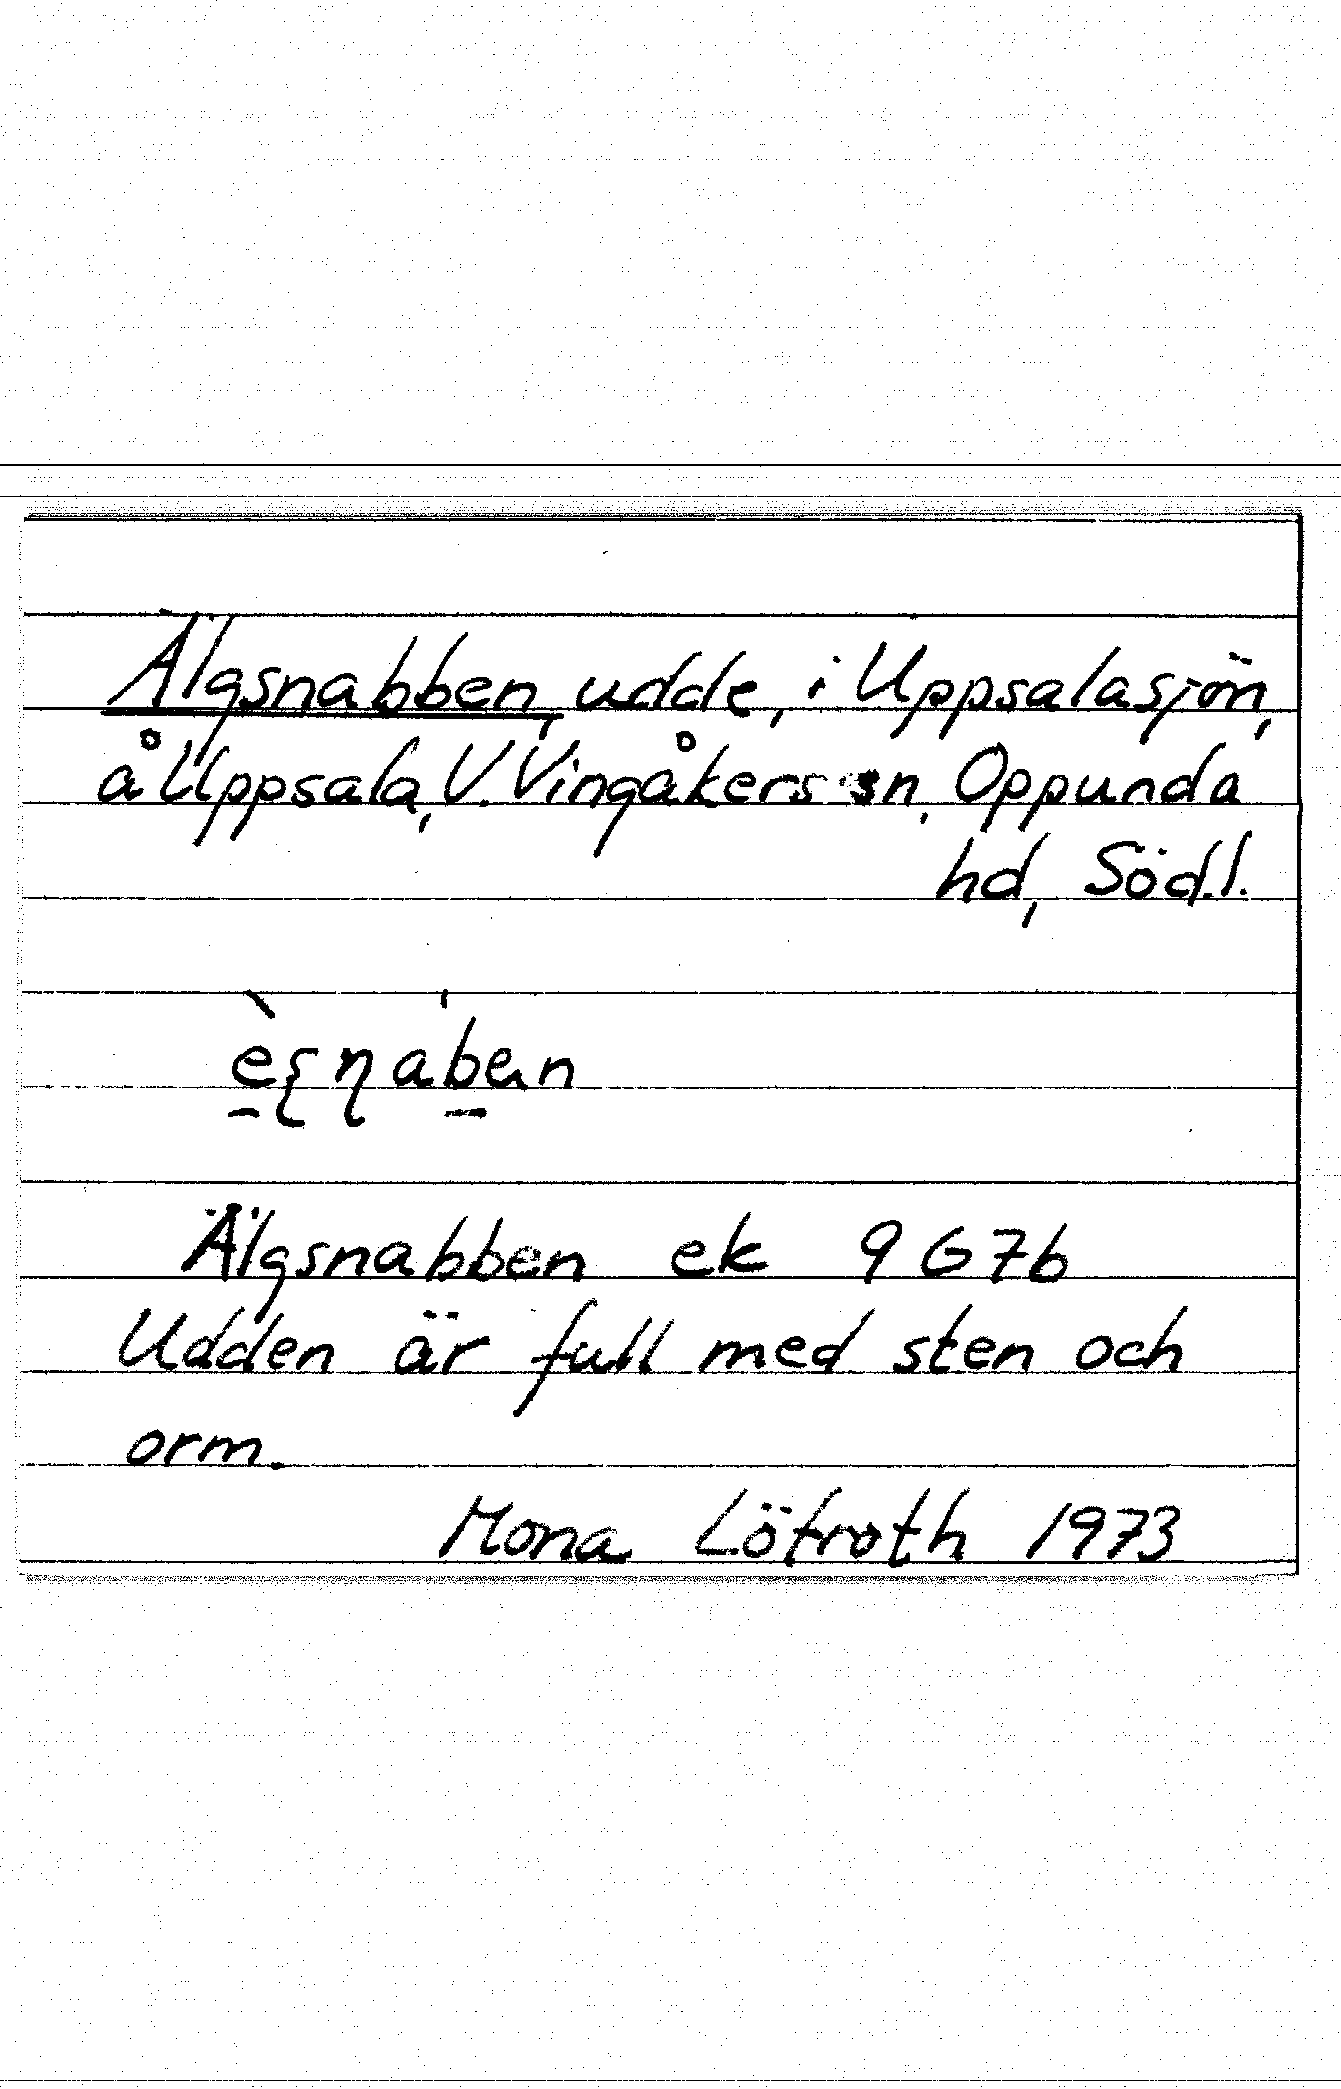 Älgsnabben, udde, i Uppsalasjön,
å Uppsala, V. Vingåkers sn, Oppunda
hd, Södl.
Älgsnabben ek 9 G 7b
Udden är full med sten och
orm.
Mona Lötroth 1973